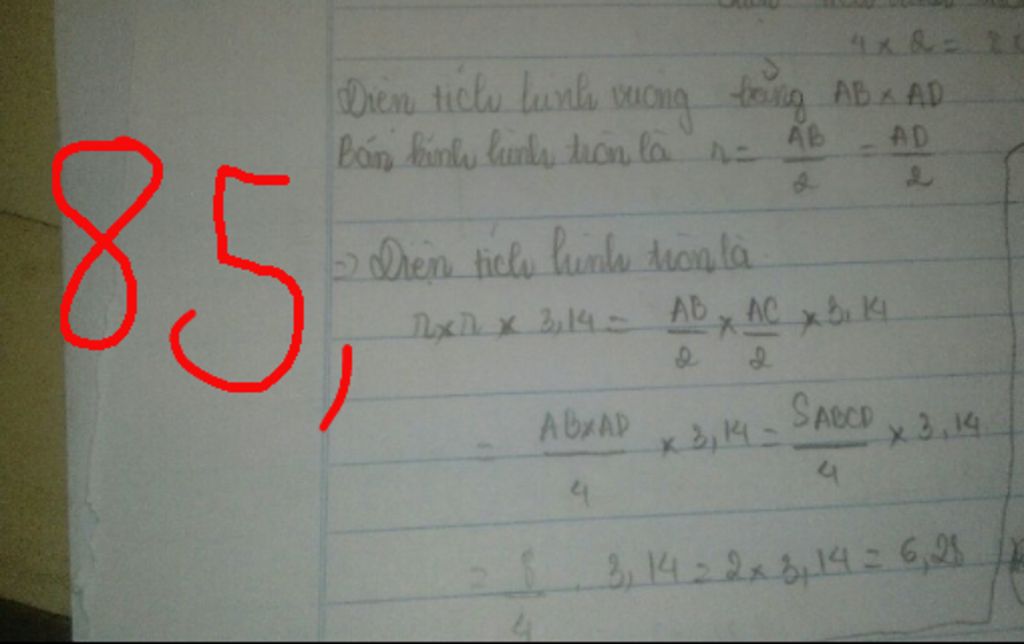 4 x 2 = 8
Diện tích hình vuông bằng AB x AD
Bán kính hình tròn là r = AB/2 = AD/2
85,
=> Diện tích hình tròn là
r x r x 3,14 = AB/2 x AC/2 x 3,14
= AB x AD/4 x 3,14 = SABCD/4 x 3,14
= 8/4 . 3,14 = 2 x 3,14 = 6,28